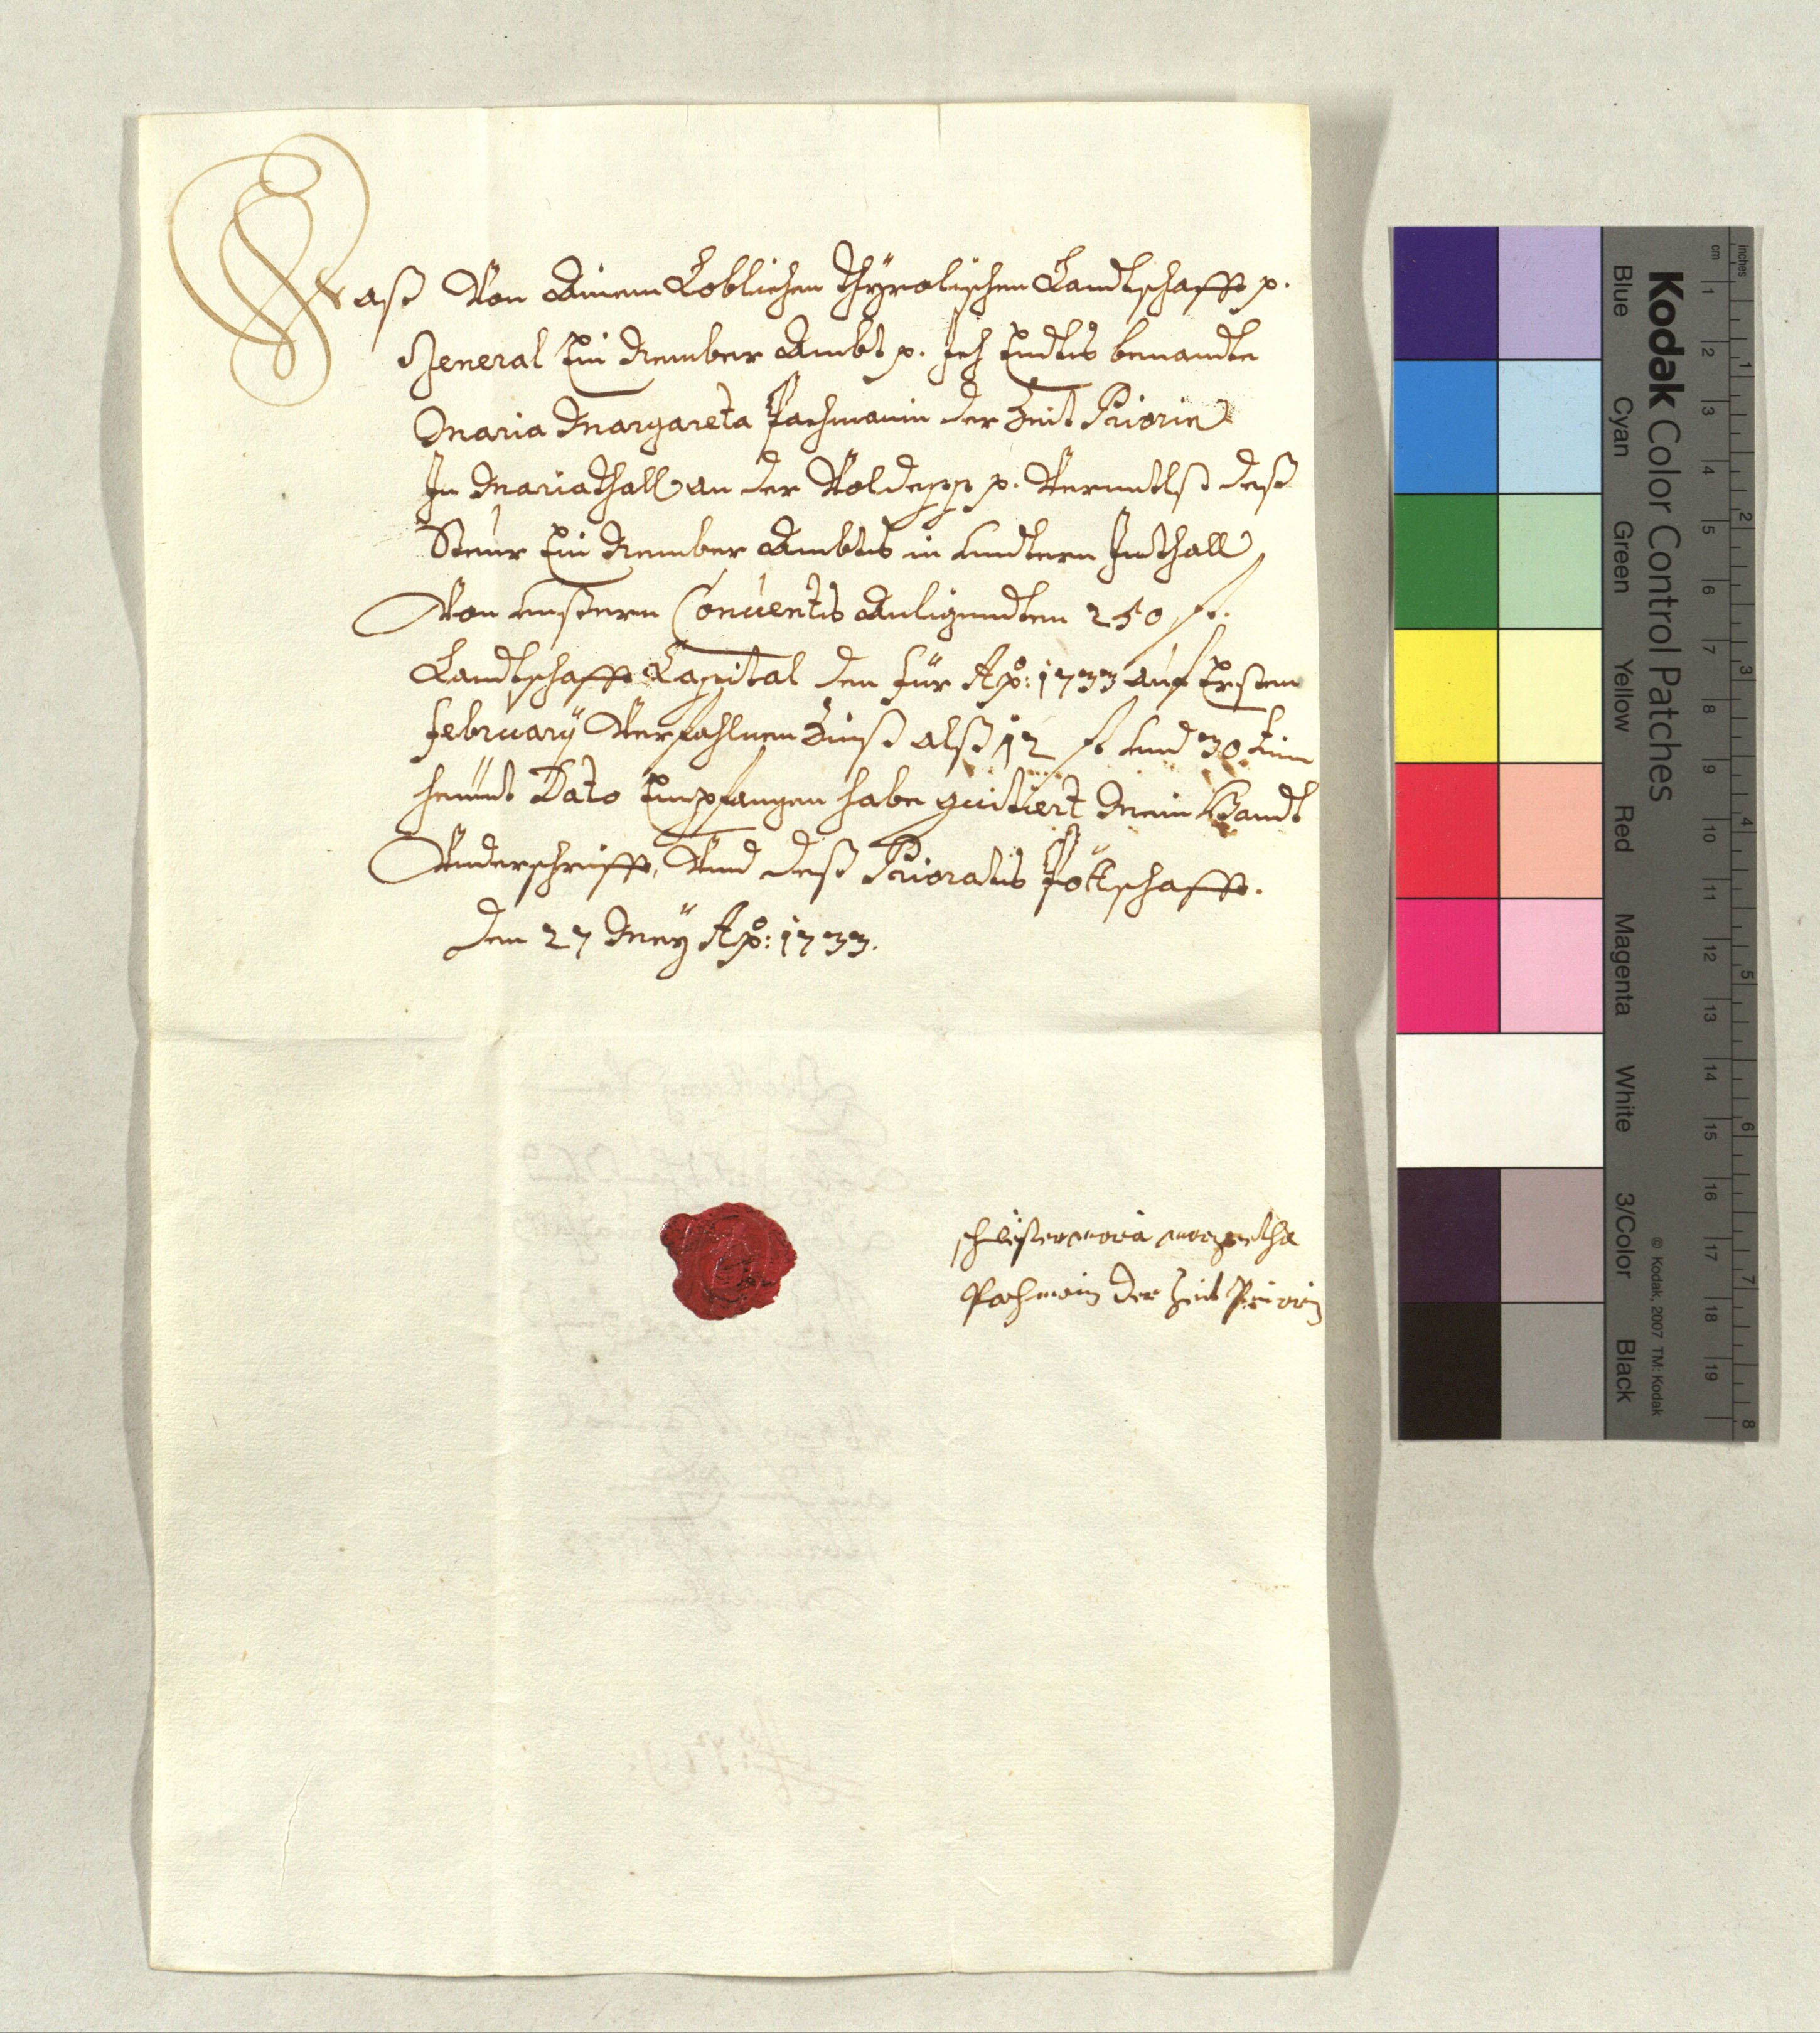 Daß Von Ainem Loblichen Thÿrolischen Landtschafft p.
General Ein Nember Ambt p. Ich Endts benandte
Maria Margareta Pachmanin der Zeit Priorin
In Mariathall an der Voldepp p. Vermitlst deß
Steur Ein Nember Ambts in Undtern Inthall
Von unßern Conuents Anligendten 250 fl.
Landtschaffts Capital den für Aō: 1733 auf Ersten
februarÿ Verfahlnen Zinß alß 12 fl und 30 kr
heünt Dato Empfangen habe quitiert Mein Handt
Underschrifft, Und deß Priorats Pöttschafft.
Den 27 Meÿ Aō: 1733.
schwister maria margretha
Pachmanin Der Zeit Priorin
Kodak Color Control Patches
Blue Cyan Green Yellow Red Magenta White 3/Color Black
© Kodak, 2007 TM: Kodak
inches 1 2 3 4 5 6 7 8
cm 1 2 3 4 5 6 7 8 9 10 11 12 13 14 15 16 17 18 19